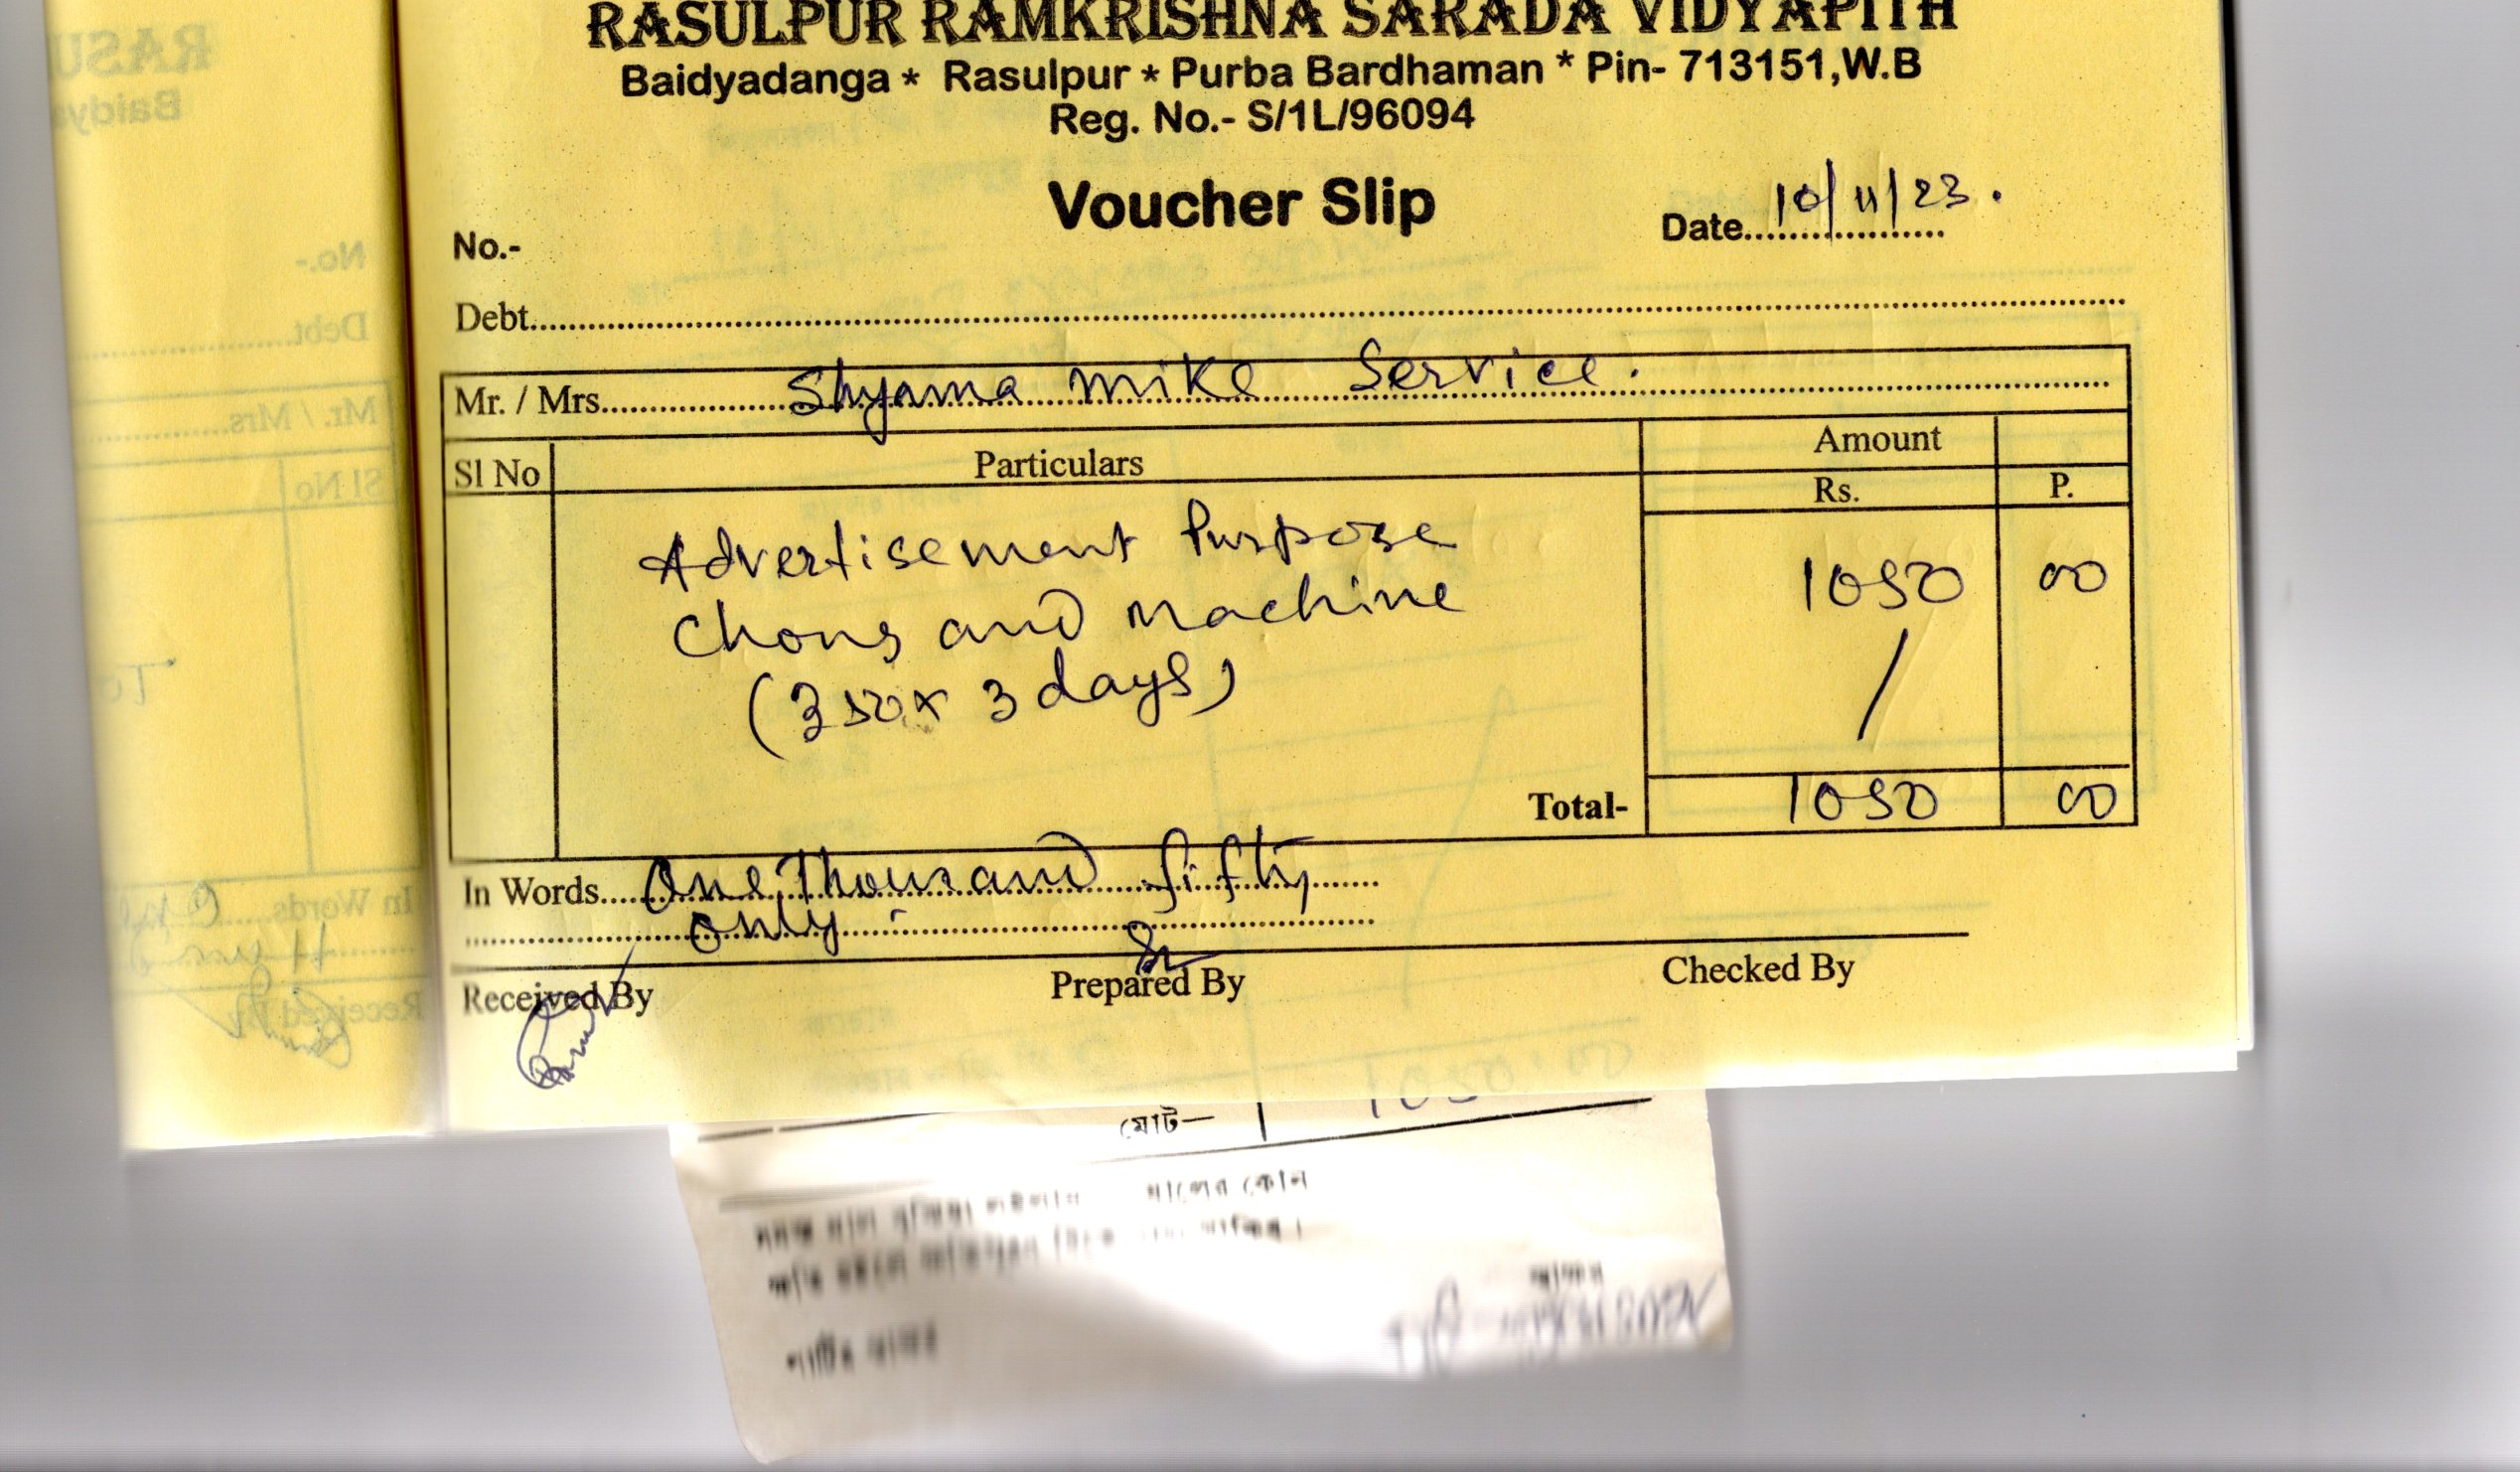 RASULPUR RAMKRISHNA SARADA VIDYAPITH
Baidyadanga * Rasulpur * Purba Bardhaman * Pin- 713151,W.B
Reg. No.- S/1L/96094
Voucher Slip
No.-
Date 10/11/23.
Debt
Mr. / Mrs Shyama Mike Service.
Sl No Particulars Amount
Rs. P.
Advertisement Purpose 1050 00
Chong and Machine
(350 x 3 days)
Total- 1050 00
In Words One Thousand fifty
only
Received By Prepared By Checked By
মোট—
মালের কোন